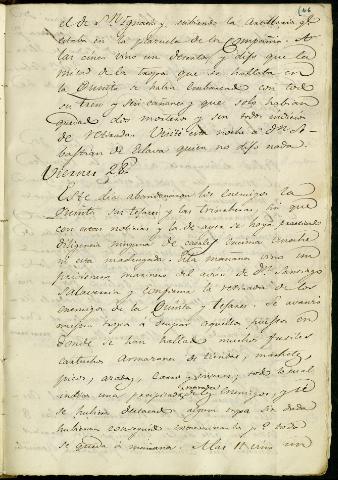 el de Sn. Ygnacio, subiendo la artilleria q.e
estaba en la plazuela de la Compañia. A
las cinco vino un desertor, y dijo que la
mitad de la tropa que se hallaba en
la Quinta se habia embarcado con todo
su tren y sin cañones y que solo habian
quedado dos morteros y son todos indicios
de retirada. Vino esta noche a Dn. Se-
bastian de Eslava quien no dijo nada.
Viernes 28.
Este dia abandonaron los enemigos la
Quinta, sus tejares y las trincheras, sin que
con estas noticias y la de ayer se haya practicado
diligencia ninguna de caerles encima anoche
ni esta madrugada. Esta mañana vino un
prisionero marinero del de Dn. Santiago
Salavarria y confirma la retirada de los
enemigos de la Quinta y tejares. Se avanzó
nuestra tropa a ocupar aquellos puestos en
donde se han hallado muchos fusiles
cartuchos armazones de tiendas, machetes,
picos, azadas, y todo lo cual
indica una precipitada retirada de los enemigos, y si
se hubiera destacado alguna tropa sin duda
hubieran conseguido p.o todo
se queda á mañana. A las 11 vino un